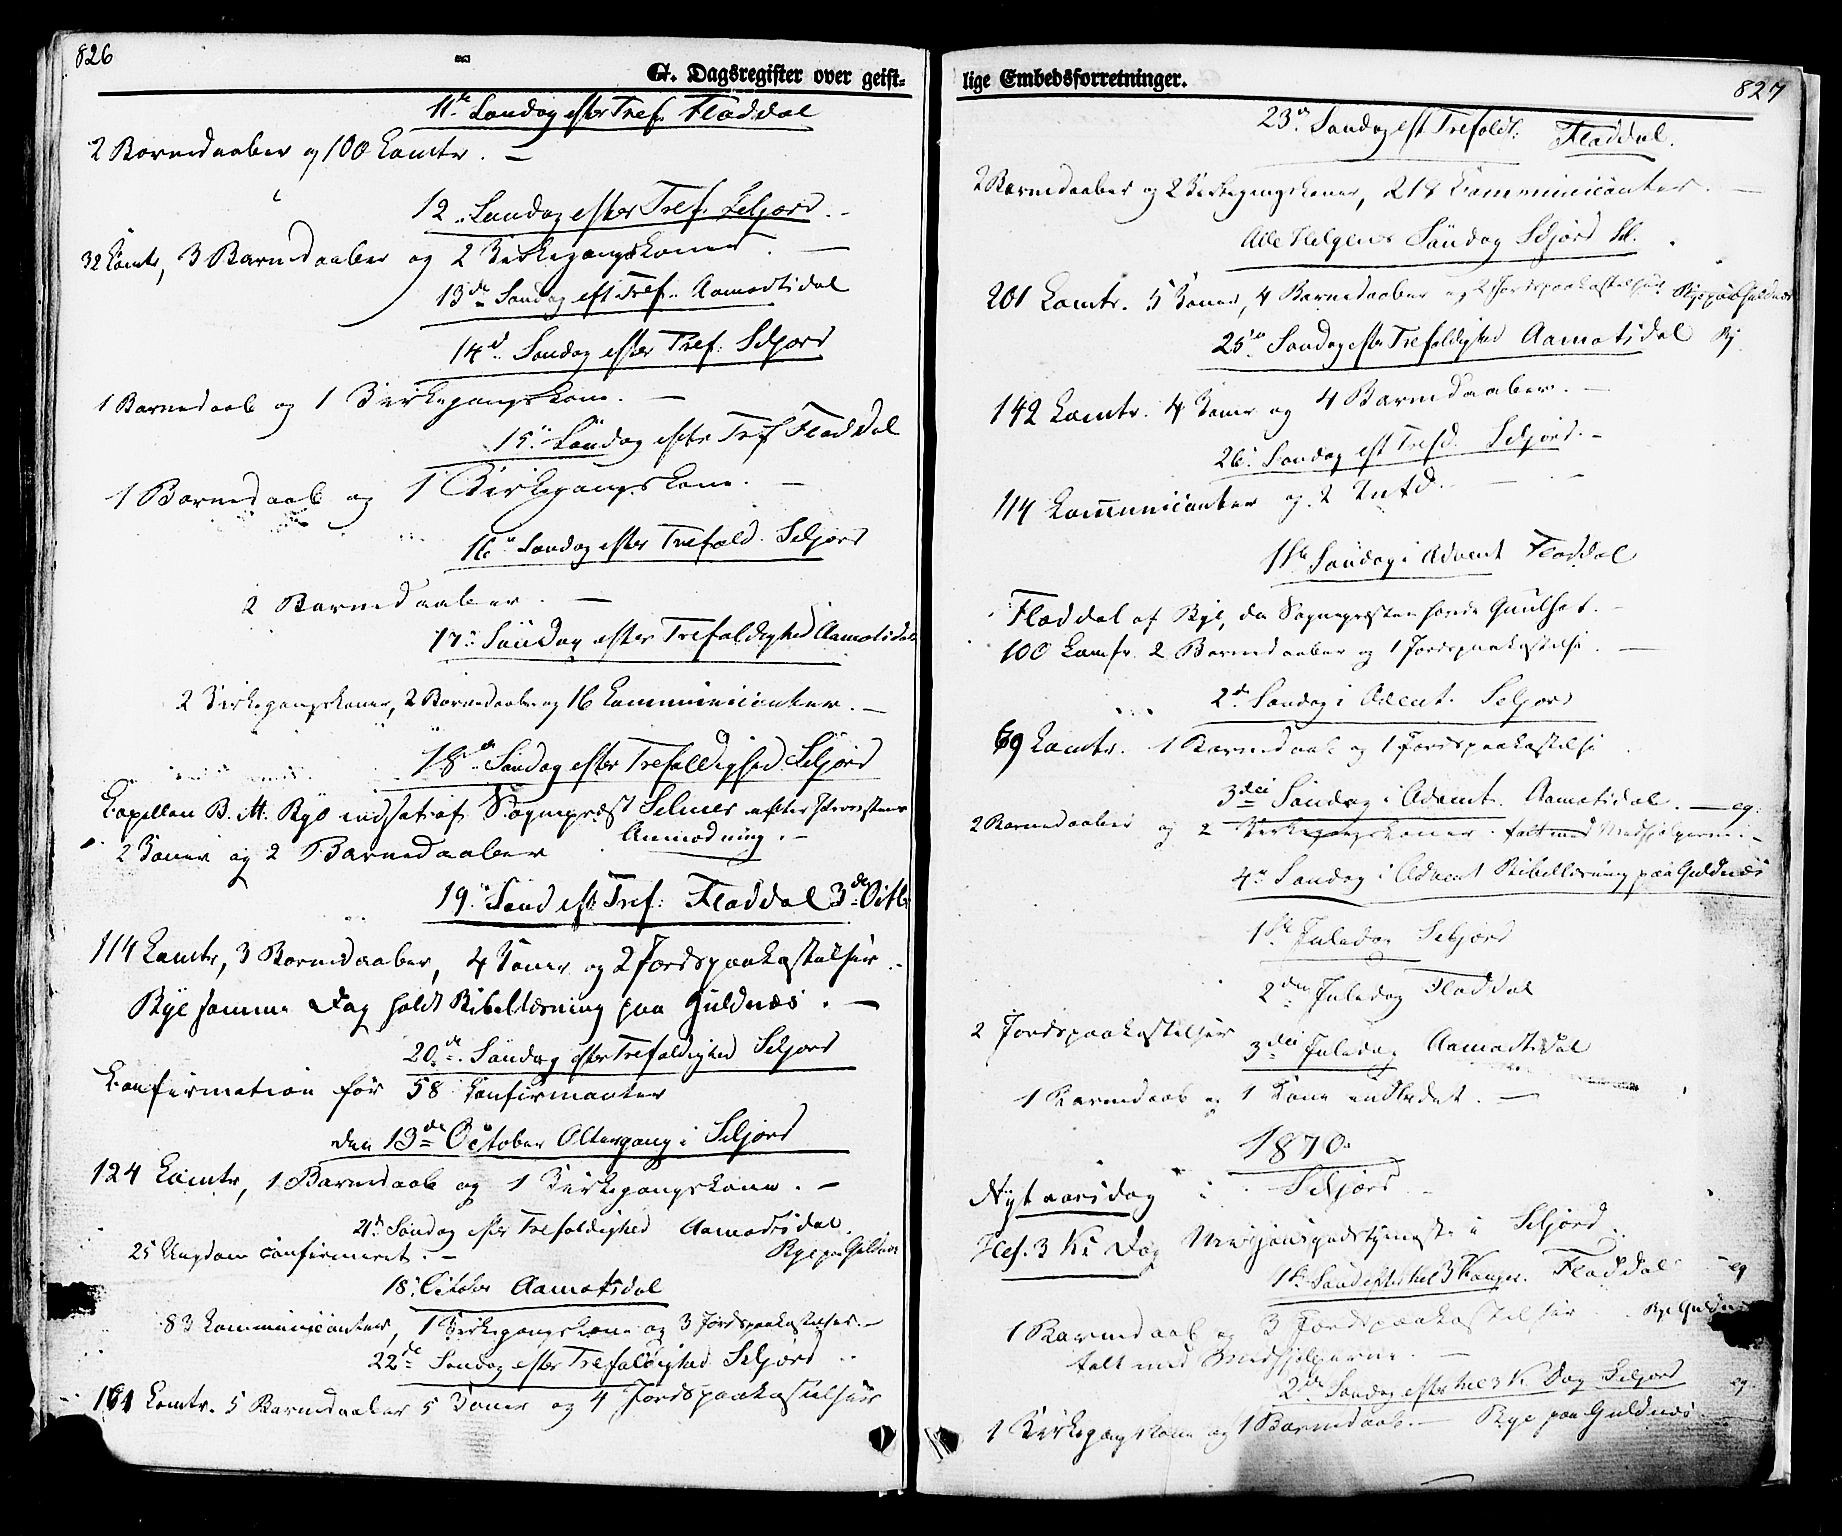 826
G. Dagsregister over geist-
11te Søndag efter Tref. Fladdal
2 Barnedaaber og 100 Comtr. —
12. Søndag efter Tref. Seljord. -
32 Comtr, 3 Barnedaaber og 2 Kirkegangskoner. —
13de Søndag eft Tref. Aamotsdal
14d. Søndag efter Tref: Seljord
1 Barnedaab og 1 Kirkegangskone. —
15. Søndag efter Tref Fladdal
1 Barnedaab og 1 Kirkegangskone. —
16. Søndag efter Trefold. Seljord
2 Barnedaaber. —
17. Søndag efter Trefoldighed Aamotsdal
2 Kirkegangskoner, 2 Barnedaaber og 16 Communicanter. —
18de Søndag efter Trefoldighed Seljord
Capellan B. M. Bye indsat af Sognepræst Selmer efter Provstens
Anmodning. -
2 Koner og 2 Barnedaaber
19. Sønd eft Tref: Fladdal 3de Octbr
114 Comtr, 3 Barnedaaber, 4 Koner og 2 Jordspaakastelser. -
Bye samme Dag holdt Bibellæsning paa Guldnæs. —
20de Søndag efter Trefoldighed Seljord
Confirmation for 58 Confirmanter
den 13de October Altergang i Seljord
124 Comtr, 1 Barnedaab og 1 Kirkegangskone. —
21d Søndag efter Trefoldighed Aamotsdal.
25 Ungdom confirmeret. — Bye paa Guldnæs
18. October Aamotsdal
83 Communicanter, 1 Kirkegangskone og 3 Jordspaakastelser. —
22de Søndag efter Trefoldighed Seljord
161 Comtr. 5 Barnedaaber 5 Koner og 4 Jordspaakastelser
lige Embedsforretninger.
827
23de Søndag eft Trefold: Fladdal.
2 Barnedaaber og 2 Kirkegangskoner, 218 Communicanter. —
Alle Helgens Søndag Seljord
201 Comtr. 5 Koner, 4 Barnedaaber og 2 Jordspaakastelser. Bye paa Guldnæs
25de Søndag efter Trefoldighed Aamotsdal
142 Comtr. 4 Koner og 4 Barnedaaber. —
26. Søndag eft Trefd. Seljord. -
114 Communicanter og 2
1ste Søndag i Advent Fladdal
Fladdal af Bye, da Sognepræsten havde
100 Comtr. 2 Barnedaaber og 1 Jordspaakastelse. —
2de Søndag i Advent. Seljord
69 Comtr. 1 Barnedaab og 1 Jordspaakastelse
3die Søndag i Advent. Aamotsdal. —
2 Barnedaaber og 2 Kirkegangskoner. talt med Medhjelperne. -
4de Søndag i Advent Bibellæsning paa Guldnæs
1ste Juledag Seljord
2den Juledag Fladdal
2 Jordspaakastelser
3die Juledag Aamotsdal
1 Barnedaab og 1 Kone indledet. —
1870.
Nytaarsdag i Seljord
Hel. 3 K. Dag Missionsgudstjeneste i Seljord.
1ste Sønd efter Hel 3 Konger. Fladdal
1 Barnedaab og 3 Jordspaakastelser Bye Guldnæs
talt med Medhjelperne. —
2den Søndag efter Hel 3 K. Dag Seljord
1 Kirkegangskone og 1 Barnedaab. — Bye paa Guldnæs